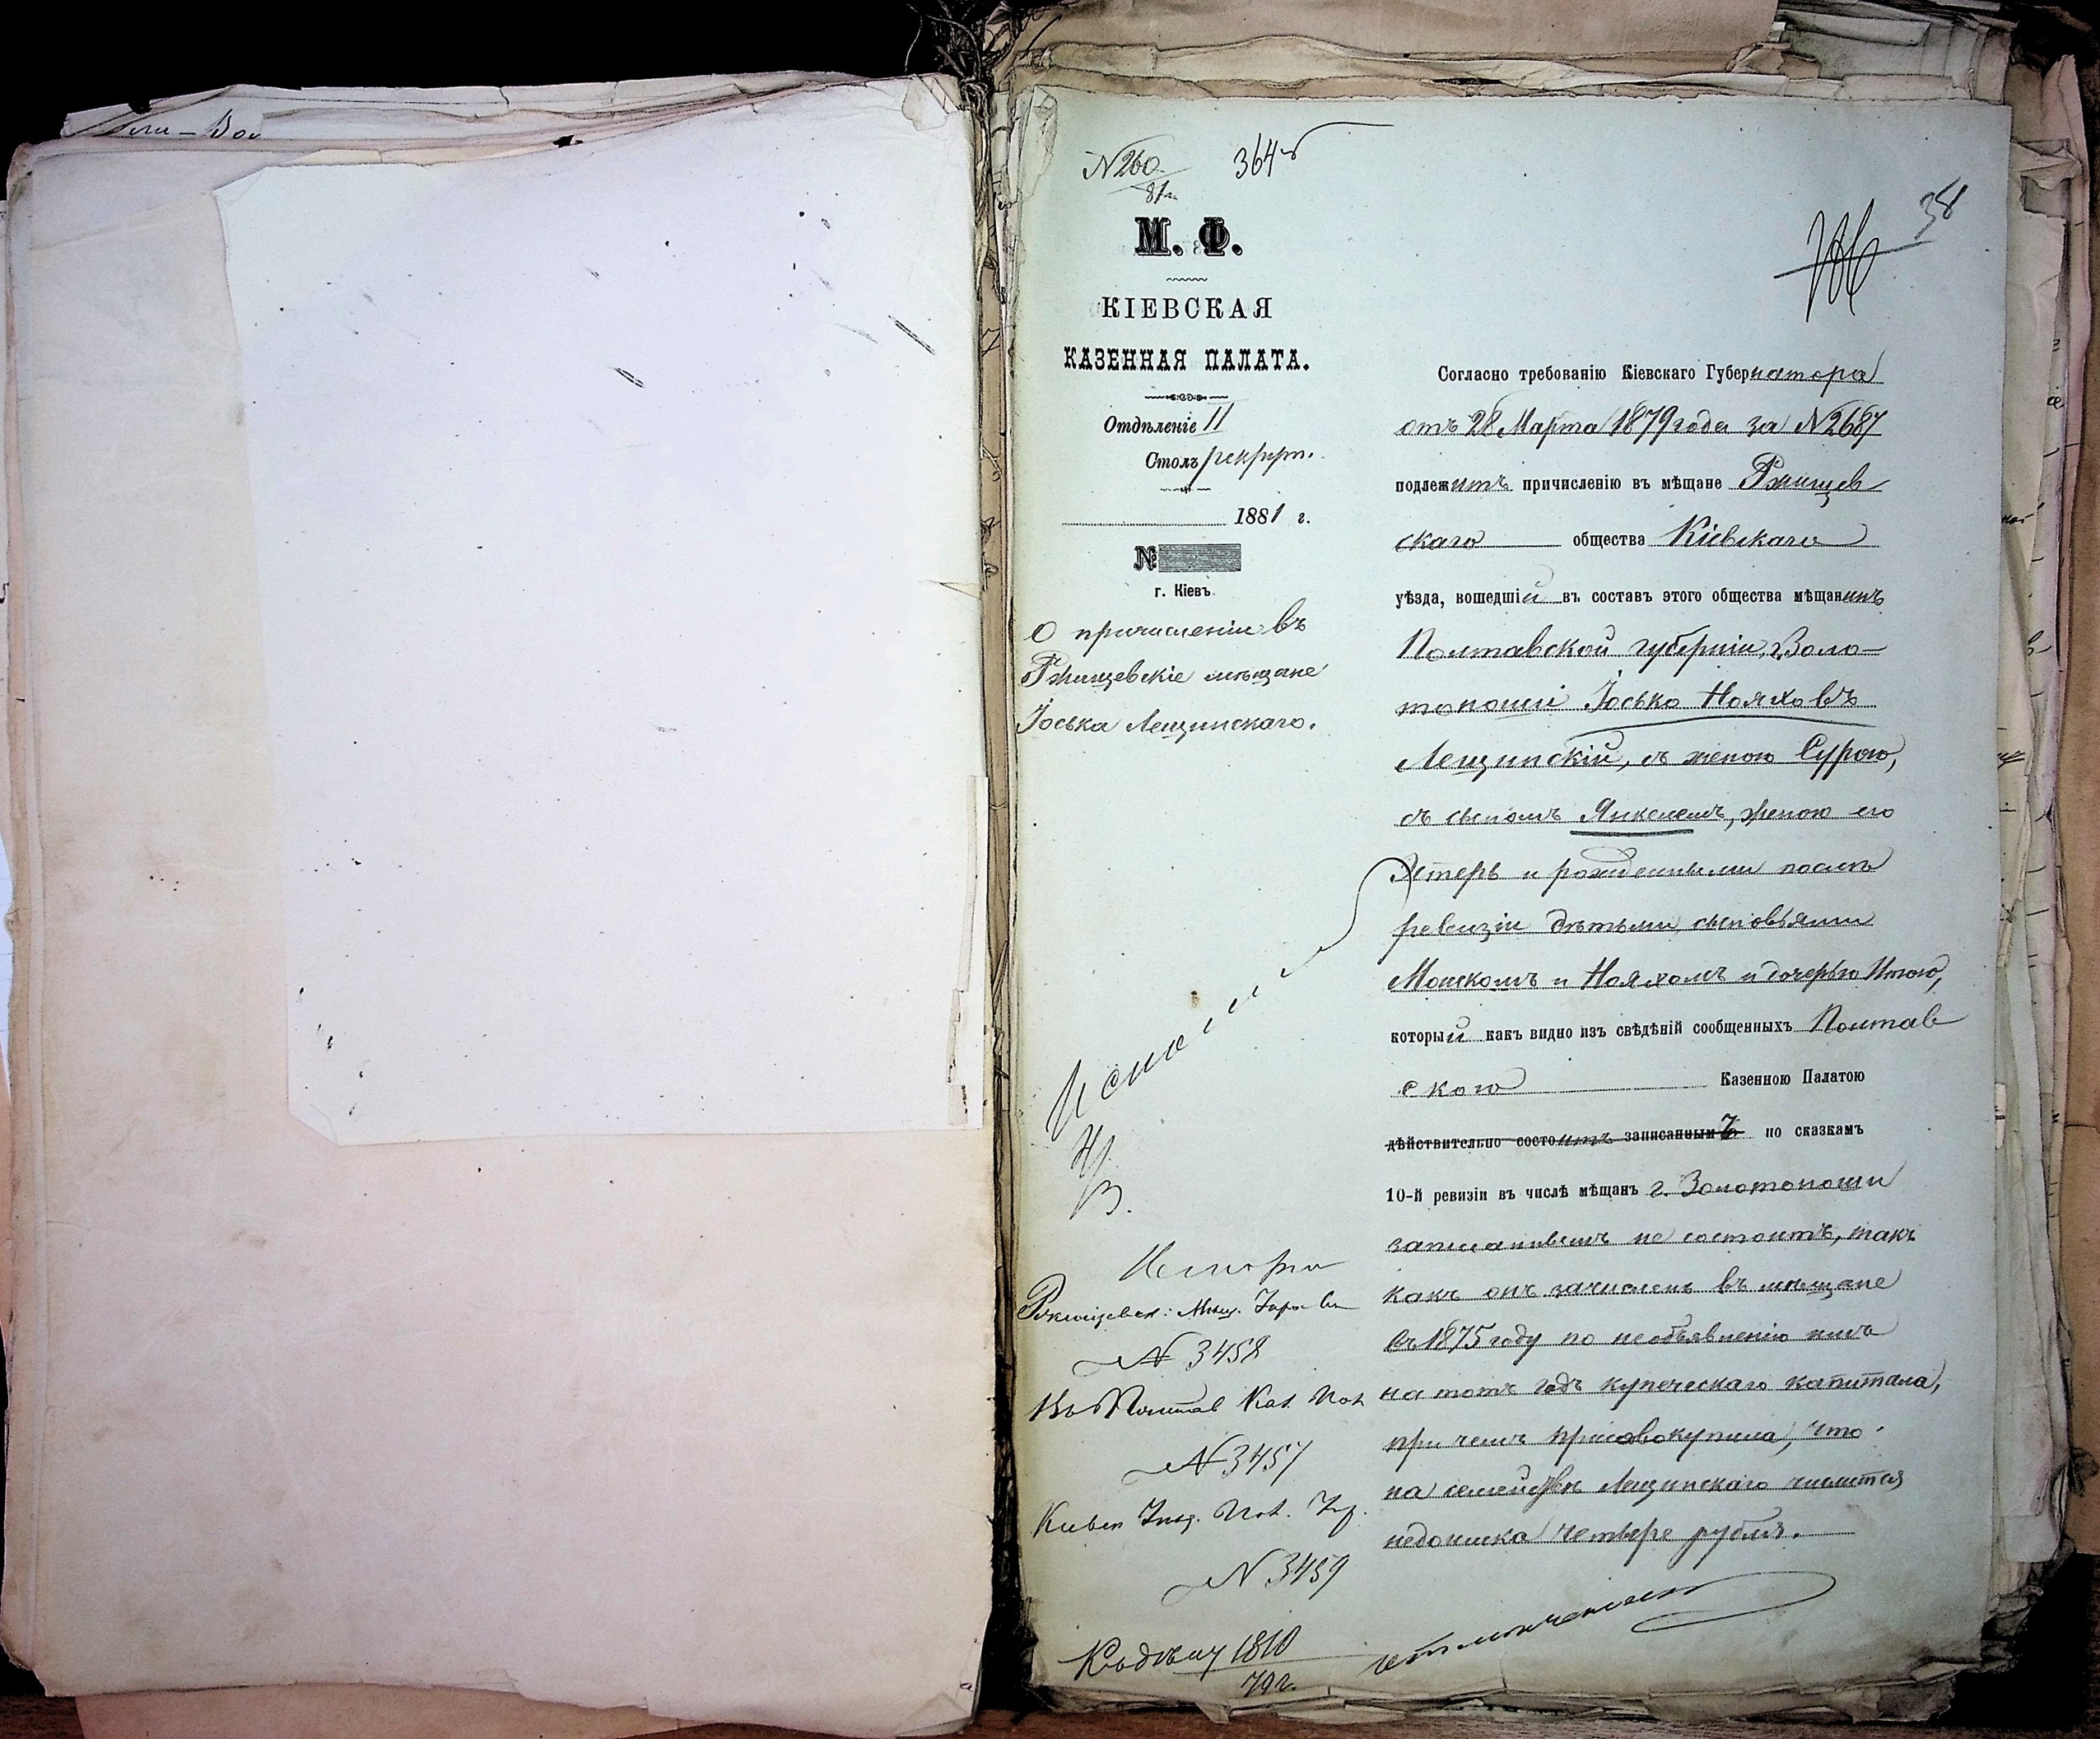 № 260
81 г.
364
38
М. Ф.
КІЕВСКАЯ
КАЗЕННАЯ ПАЛАТА.
Отдѣленіе II
Столъ рекрут.
1881 г.
№
г. Кіевъ.
О причисленіи въ
Ржищевскіе мѣщане
Іоська Лещинскаго.
Исполн
Ржищевск: Мѣщ.
№ 3458
Въ Полтав Каз. Пал.
№ 3457
№ 3459
Къ дѣлу 1810
79 г.
Согласно требованію Кіевскаго Губернатора
отъ 28 Марта 1879 года за № 2687
подлежитъ причисленію въ мѣщане Ржищев
скаго общества Кіевскаго
уѣзда, вошедшій въ составъ этого общества мѣщанинъ
Полтавской губерніи, г. Золо-
тоноши Іосько Нояховъ
Лещинскій, съ женою Сурою,
съ сыномъ Янкелемъ, женою его
Эстеръ и рожденными послѣ
ревизіи дѣтьми, сыновьями
Мошкомъ и Нояхомъ и дочерью Итою,
который какъ видно изъ свѣдѣній сообщенныхъ Полтав
скою Казенною Палатою
дѣйствительно состоитъ записаннымъ по сказкамъ
10-й ревизіи въ числѣ мѣщанъ г. Золотоноши
записаннымъ не состоитъ, такъ
какъ онъ зачисленъ въ мѣщане
въ 1875 году по необъявленію имъ
на тотъ годъ купеческаго капитала,
при чемъ присовокупила, что
на семействѣ Лещинскаго числится
недоимка четыре рубля.